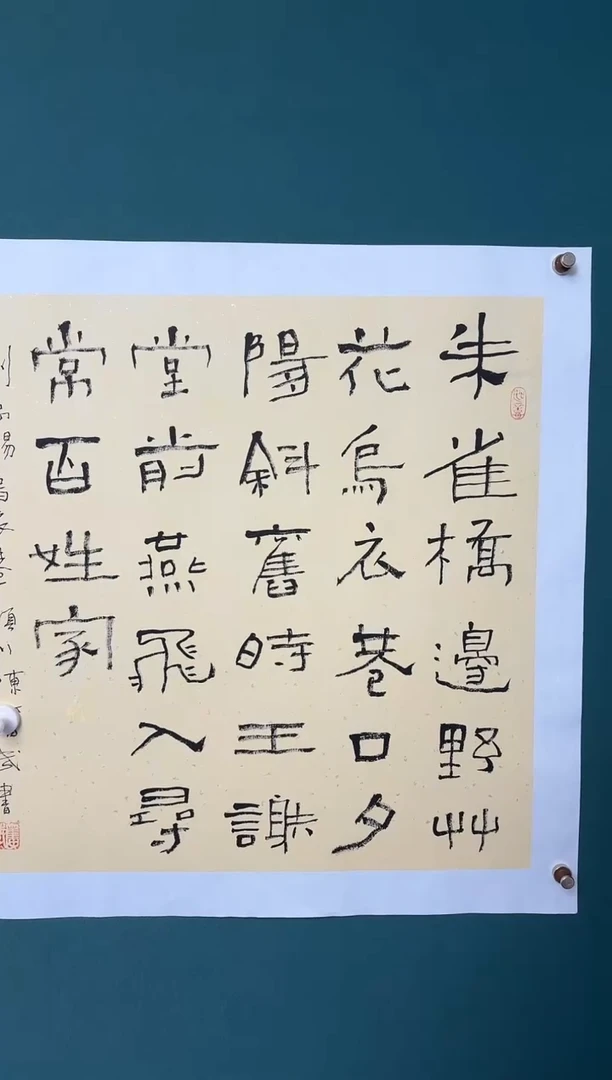 朱雀橋邊野艸
花烏衣巷口夕
陽斜舊時王謝
堂前燕飛入尋
常百姓家